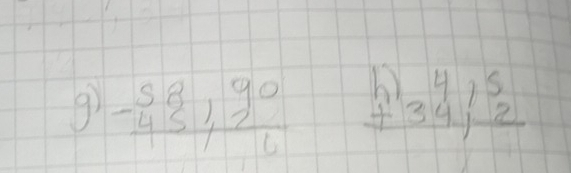 g) 58,90 h) 4,5
- 45,2 + 34,2